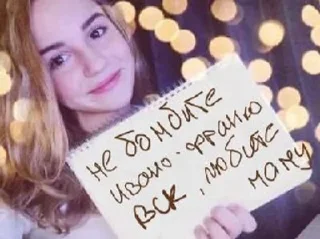 не бомбите
ивано-франко
вск, любите
маму